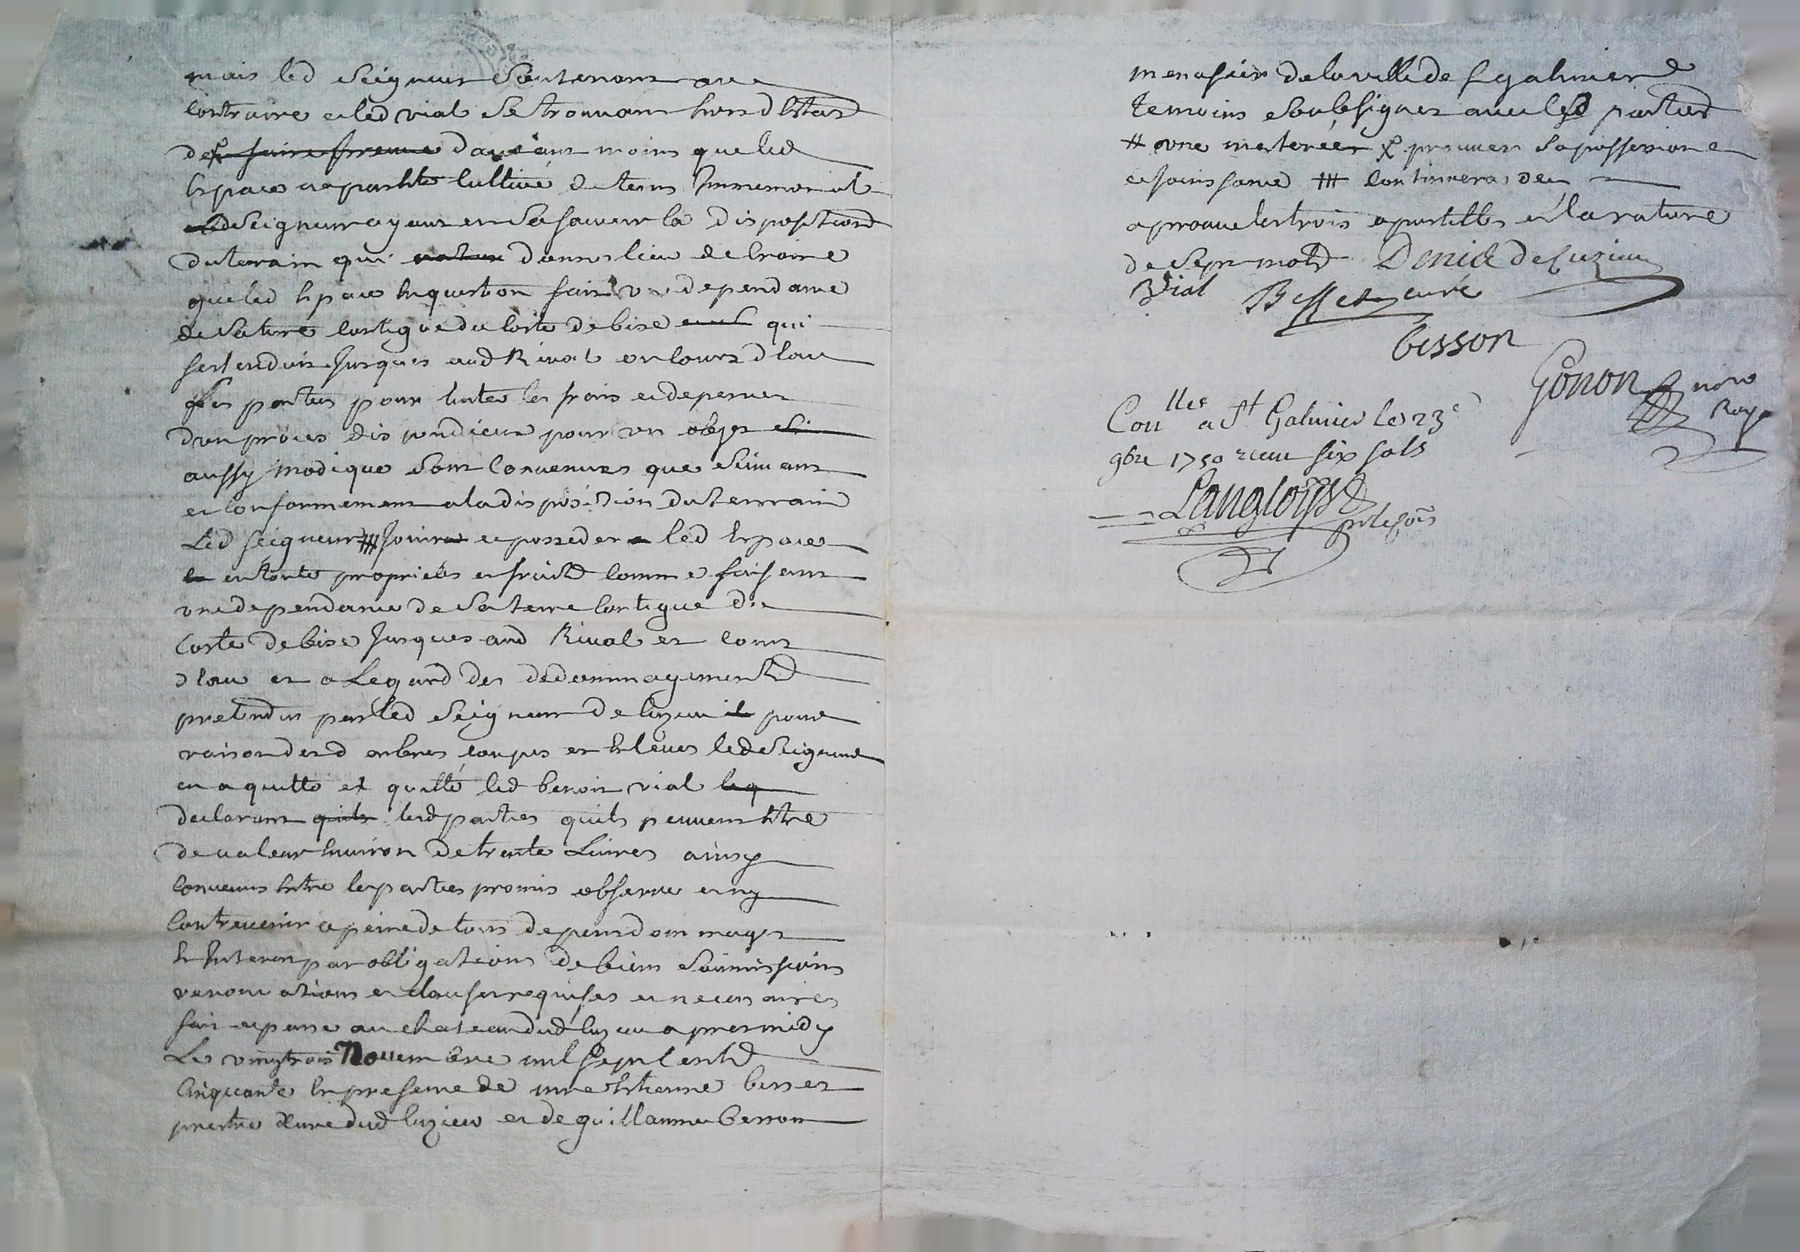 mais led Seigneur Soutenant au
Contraire et led vial Se trouvant hors d Estat
de faire preuve dautant moins que led
Espace a parttte Cultivé de tems Immemorial
led Seigneur ayant en Sa faveur la disposition
du terrain qui donne lieu de Croire
que led Espace En question fait une dependance
de Sa terre Contigue du Costé de bise qui
sestendoit Jusques aud Rivat ou Cours d Eau
les parties pour Eviter les frais et depenses
d'un procés dispendieux pour un objet Si
aussy modique Sont Convenues que Suivant
et Conformement a la disposition du terrain
Led Seigneur # Jouira et posseder led Espace
en toute proprieté et fruits Comme faisant
une dependance de Sa terre Contigue du
Costé de bise Jusques aud Rivat et Cours
d Eau et a L'egard des dedommagements
pretendus par led Seigneur de Cuzieu pour
raison desd arbres Coupés et Enlevés led Seigneur
en a quitté et quitte led benoit vial leq
declarant quils lesd parties quils peuvent Etre
de valeur Environ de trente Livres ainsy
Convenus Entre les parties promis observer et ny
Contrevenir a peine de tous depens dommages
Et Interets par obligations de biens Soumissions
renonciations et Clauses requises et necessaires
fait et passé au chateau dud Cuzieu apres midy
Le vingttrois Novembre mil Sept Cents
Cinquante En presence de mre Estienne besset
prestre Curé dud Cuzieu et de guillaume besson
menusier de la ville de S galmier
temoins Soubsignes avec lesd parties
# une materée pr prouver Sa possession
et jouissance ## Continuera de
aprouve les trois apostilles et la rature
de Sept mots Denis de Cuzieu
B Vial Besset curé
besson
Gonon nore Royl
Conllé a St Galmier le 23e
9bre 1750 recu six sols
Langlois